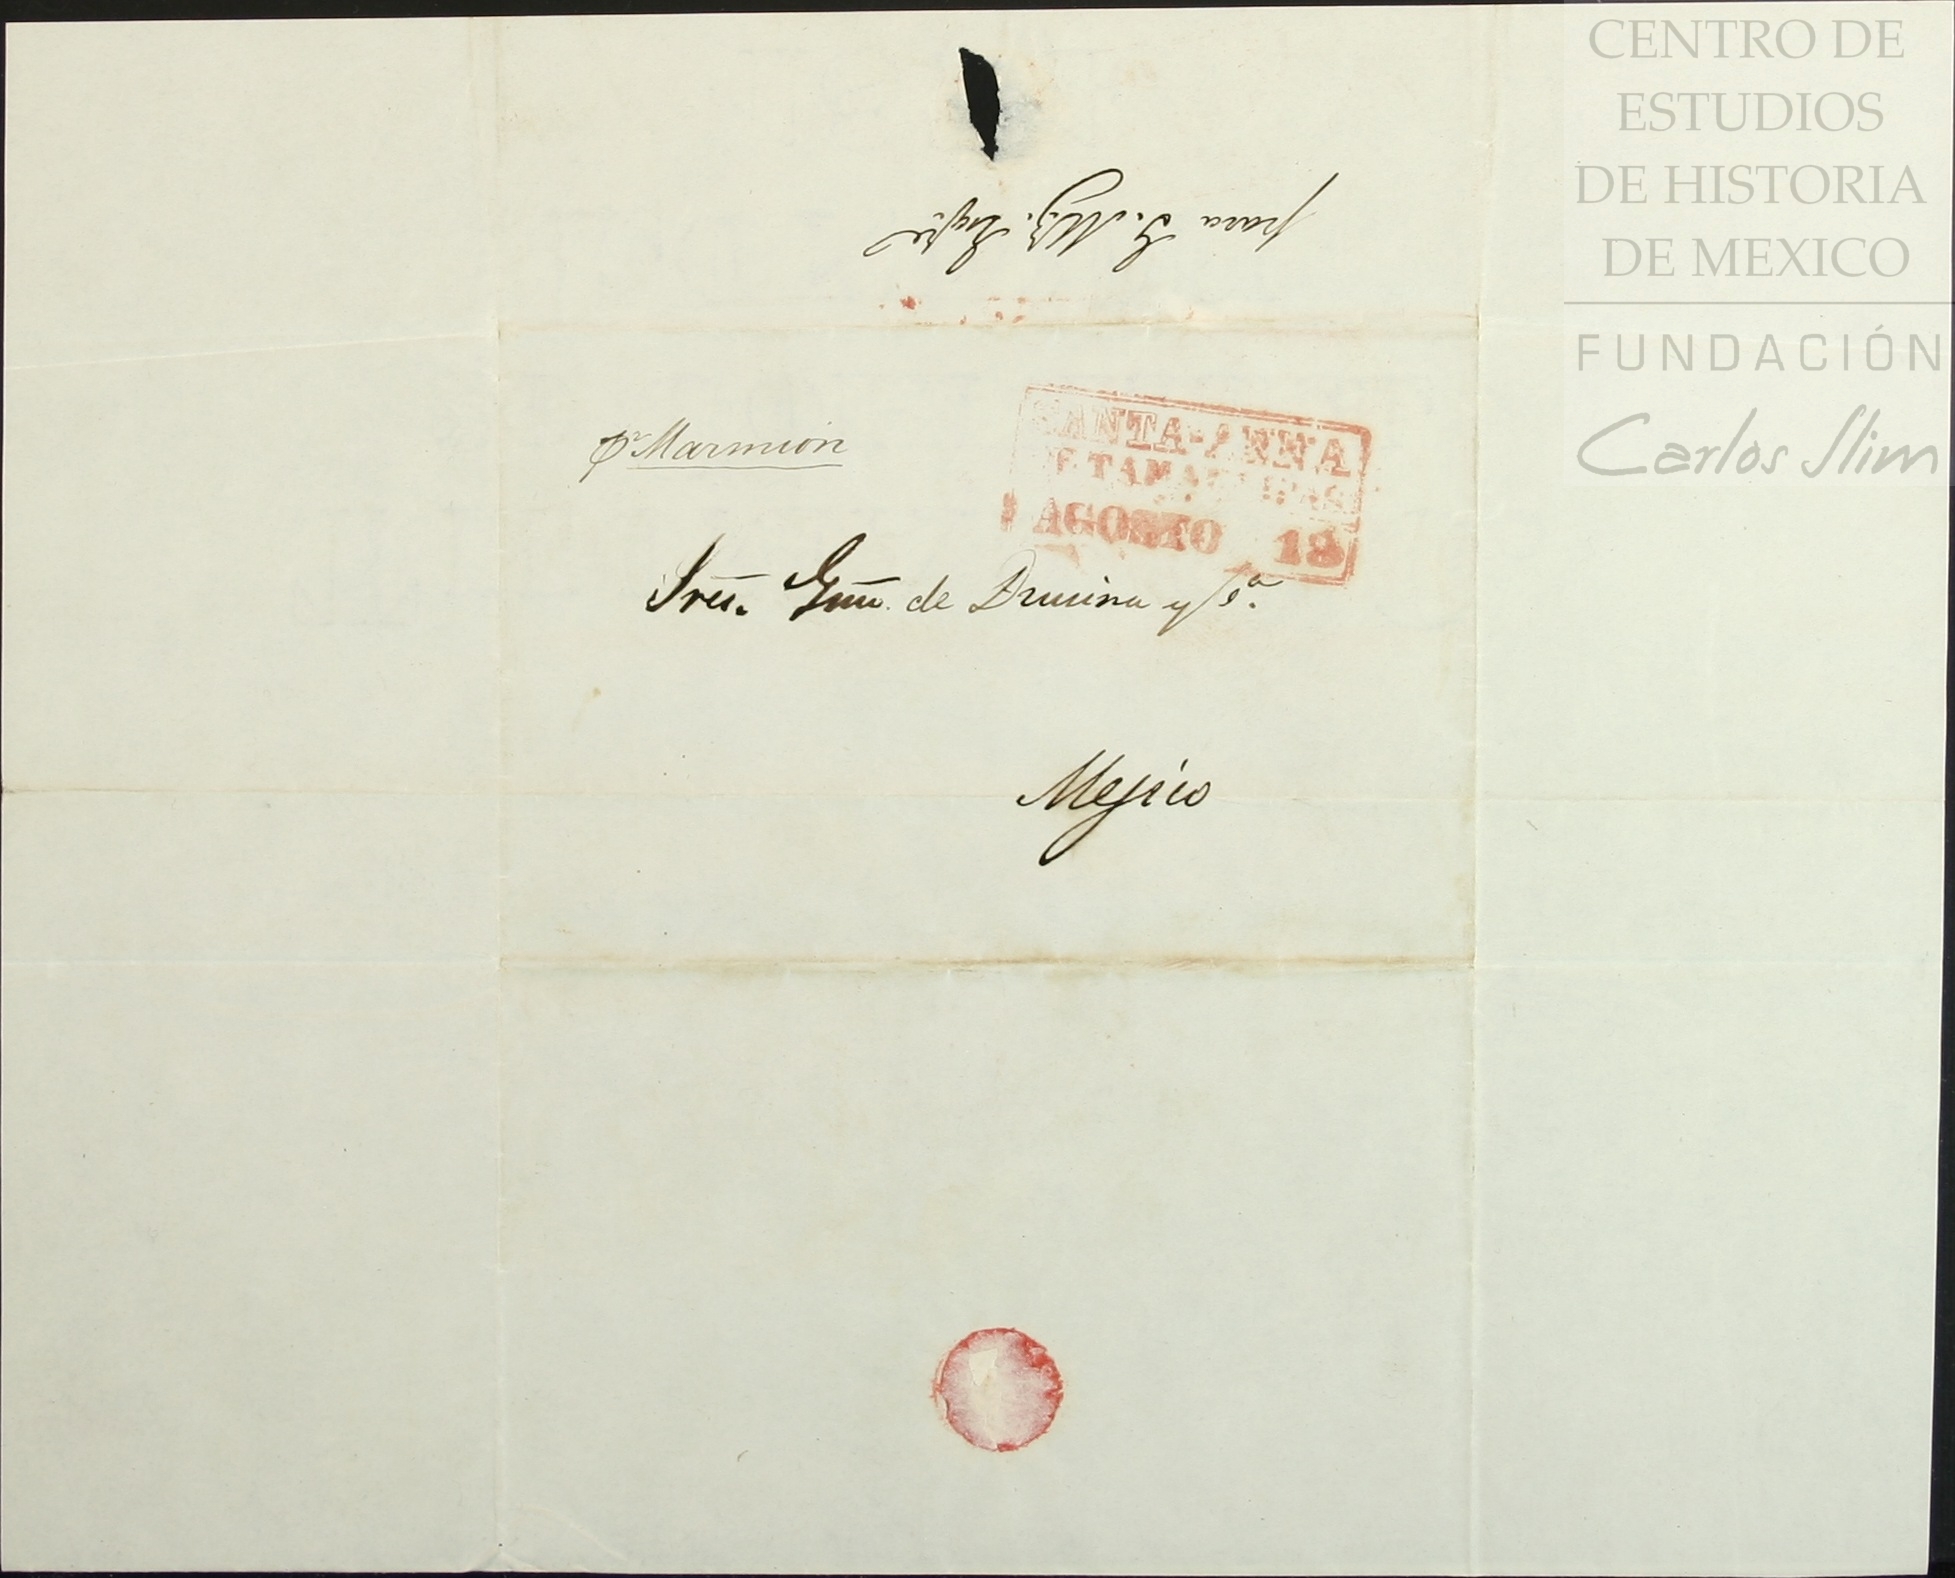 para
pr Marmion
SANTA-ANNA
DE TAMAULIPAS
AGOSTO 18
Sres. Gmo. de Drusina y Ca.
Mejico
CENTRO DE
ESTUDIOS
DE HISTORIA
DE MEXICO
FUNDACIÓN
Carlos Slim